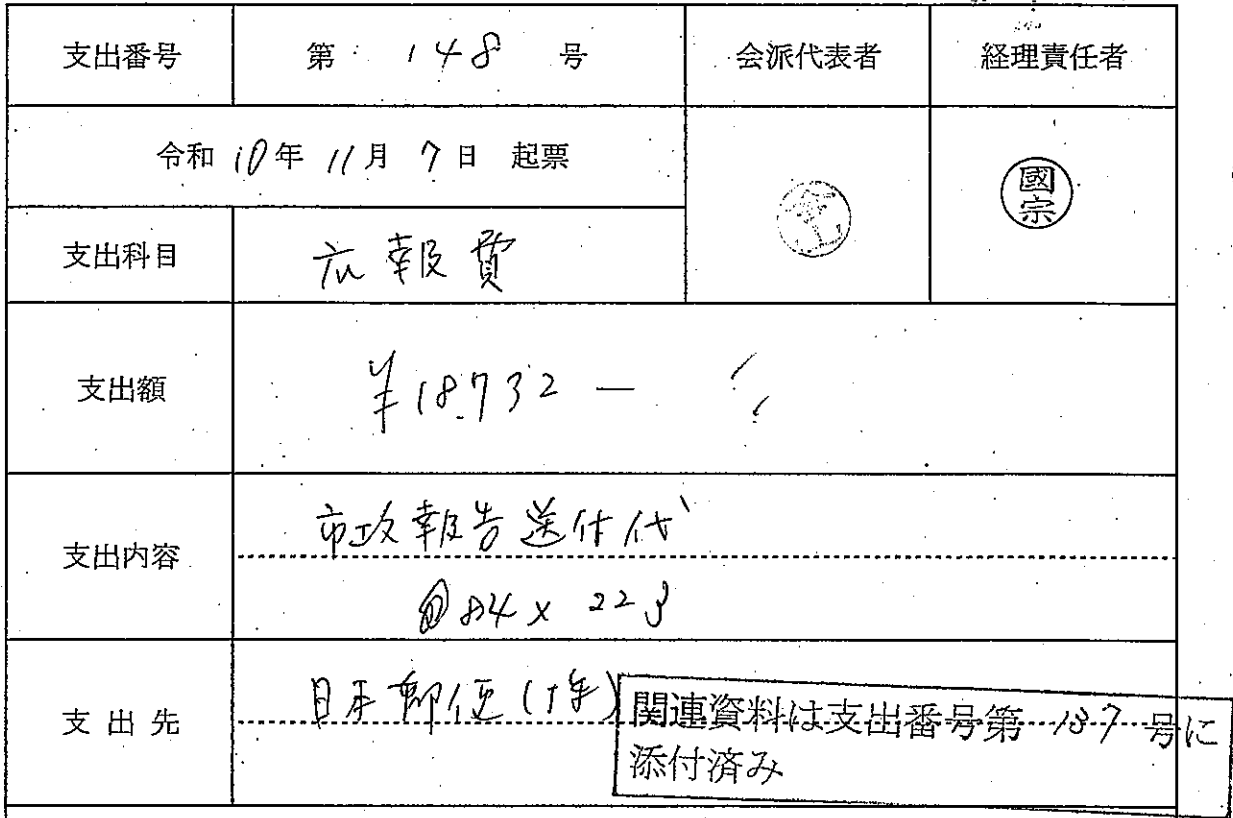 支出番号 第 148 号 会派代表者 経理責任者
令和 10年 11月 7日 起票
國宗
支出科目 広報費
支出額 ¥18,732 —
支出内容 市政報告送付代
@84 × 223
支出先 日本郵便(株)
関連資料は支出番号第 137 号に
添付済み